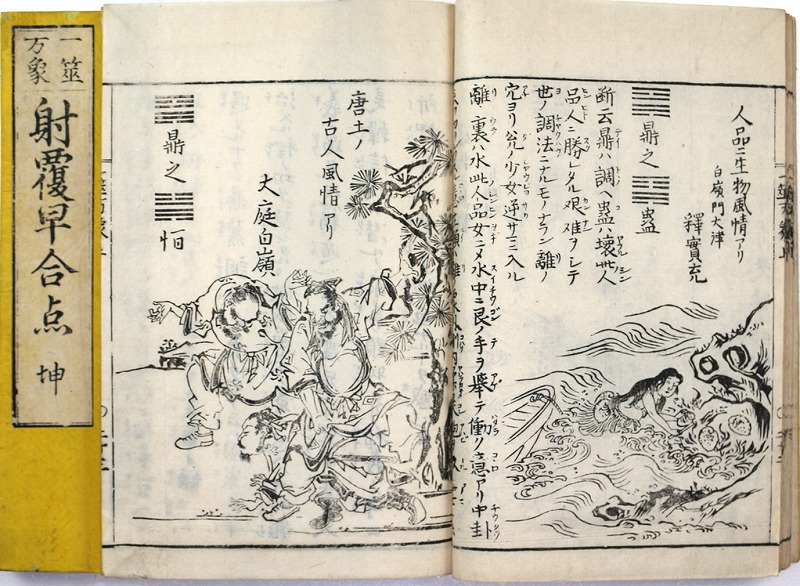 一筮
万象
射覆早合点 坤
人品ニ生物風情アリ
白嶺門大津
釋實充
鼎之
蠱
断云鼎ハ調ヘ蠱ハ壞此人
品人ニ勝レタル艱难ヲシテ
世ノ調法ニナルモノナラン離ノ
完ヨリ兊ノ少女逆サニ入ル
離ノ裏ハ水此人品女ニメ水中ニ艮ノ手ヲ擧テ働ク意アリ中卦
唐土ノ
古人風情アリ
大庭白嶺
鼎之
恒